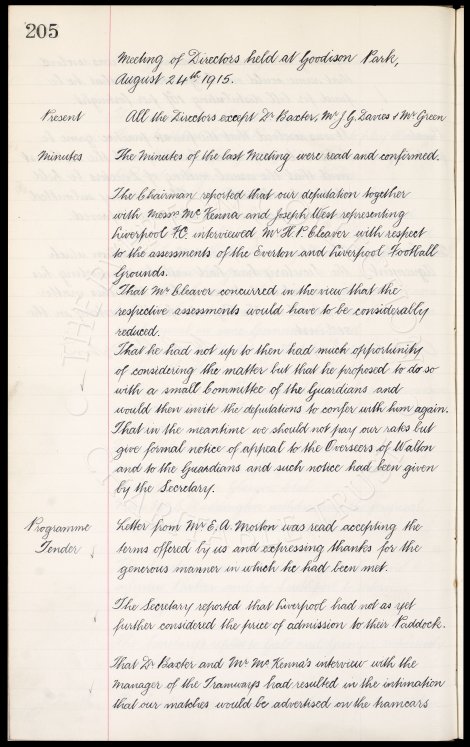 205
Meeting of Directors held at Goodison Park,
August 24th 1915.
Present All the Directors except Dr Baxter, Mr J. G. Davies & Mr Green
Minutes The Minutes of the last Meeting were read and confirmed.
The Chairman reported that our deputation together
with Messrs McKenna and Joseph West representing
Liverpool F.C. interviewed Mr H. P. Cleaver with respect
to the assessments of the Everton and Liverpool Football
Grounds.
That Mr Cleaver concurred in the view that the
respective assessments would have to be considerably
reduced.
That he had not up to then had much opportunity
of considering the matter but that he proposed to do so
with a small Committee of the Guardians and
would then invite the deputations to confer with him again.
That in the meantime we should not pay our rates but
give formal notice of appeal to the Overseers of Walton
and to the Guardians and such notice had been given
by the Secretary.
Programme Letter from Mr E. A. Morton was read accepting the
Tender terms offered by us and expressing thanks for the
generous manner in which he had been met.
The Secretary reported that Liverpool had not as yet
further considered the price of admission to their Paddock.
That Dr Baxter and Mr McKenna's interview with the
manager of the Tramways had resulted in the intimation
that our matches would be advertised on the tramcars